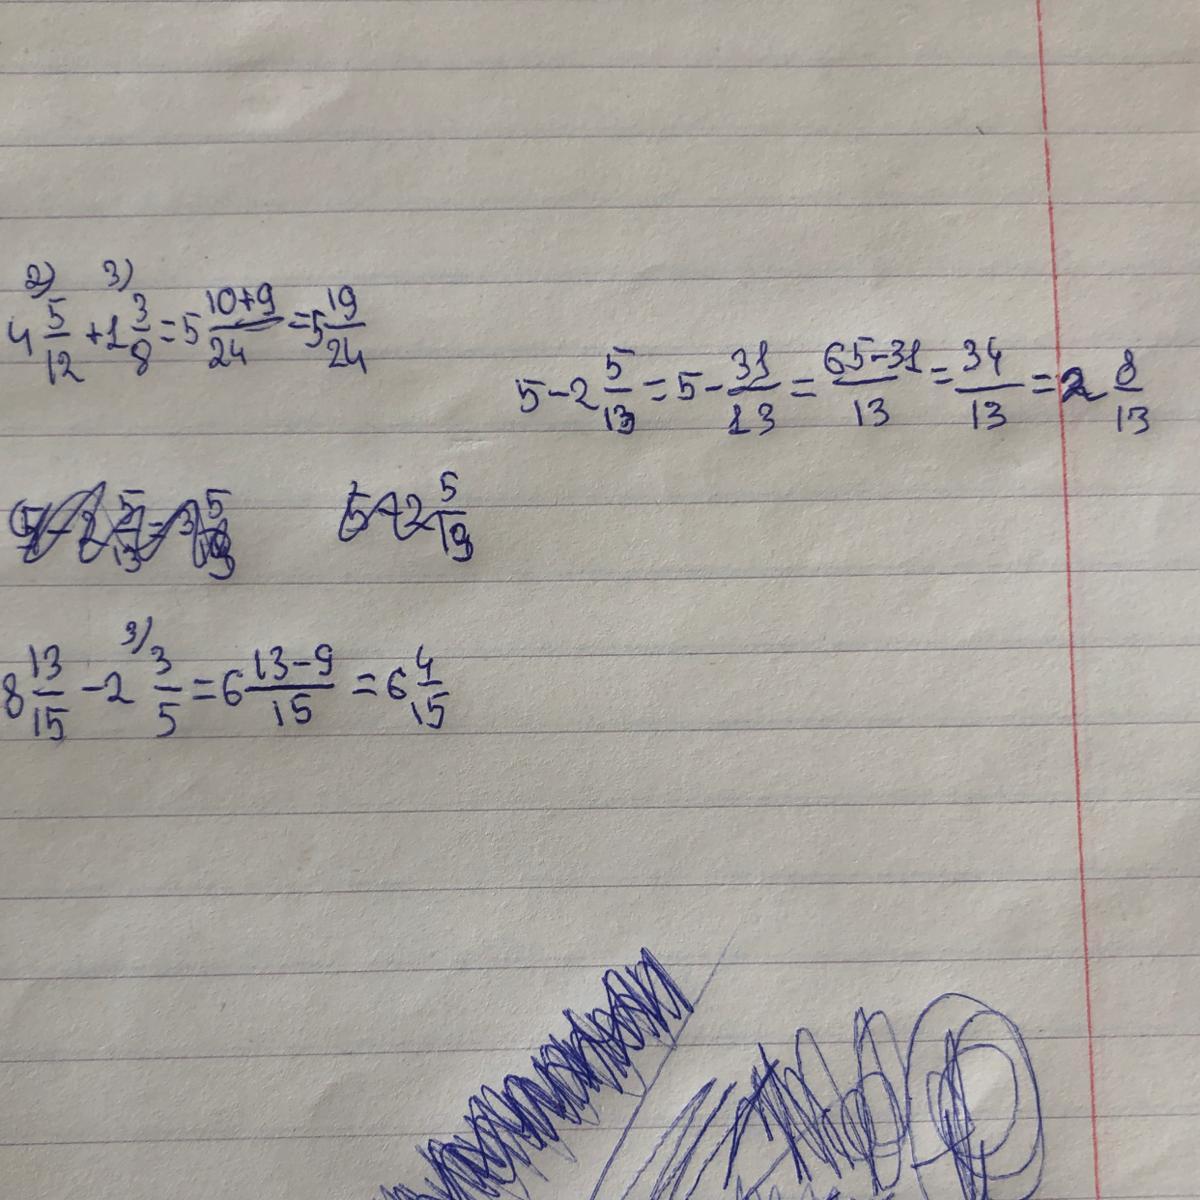 2) 3)
4 5/12 + 1 3/8 = 5 10+9/24 = 5 19/24
5 - 2 5/13 = 5 - 31/13 = 65-31/13 = 34/13 = 2 8/13
5 - 2 5/13 = 3 5/13
5 - 2 5/13
3)
8 13/15 - 2 3/5 = 6 13-9/15 = 6 4/15